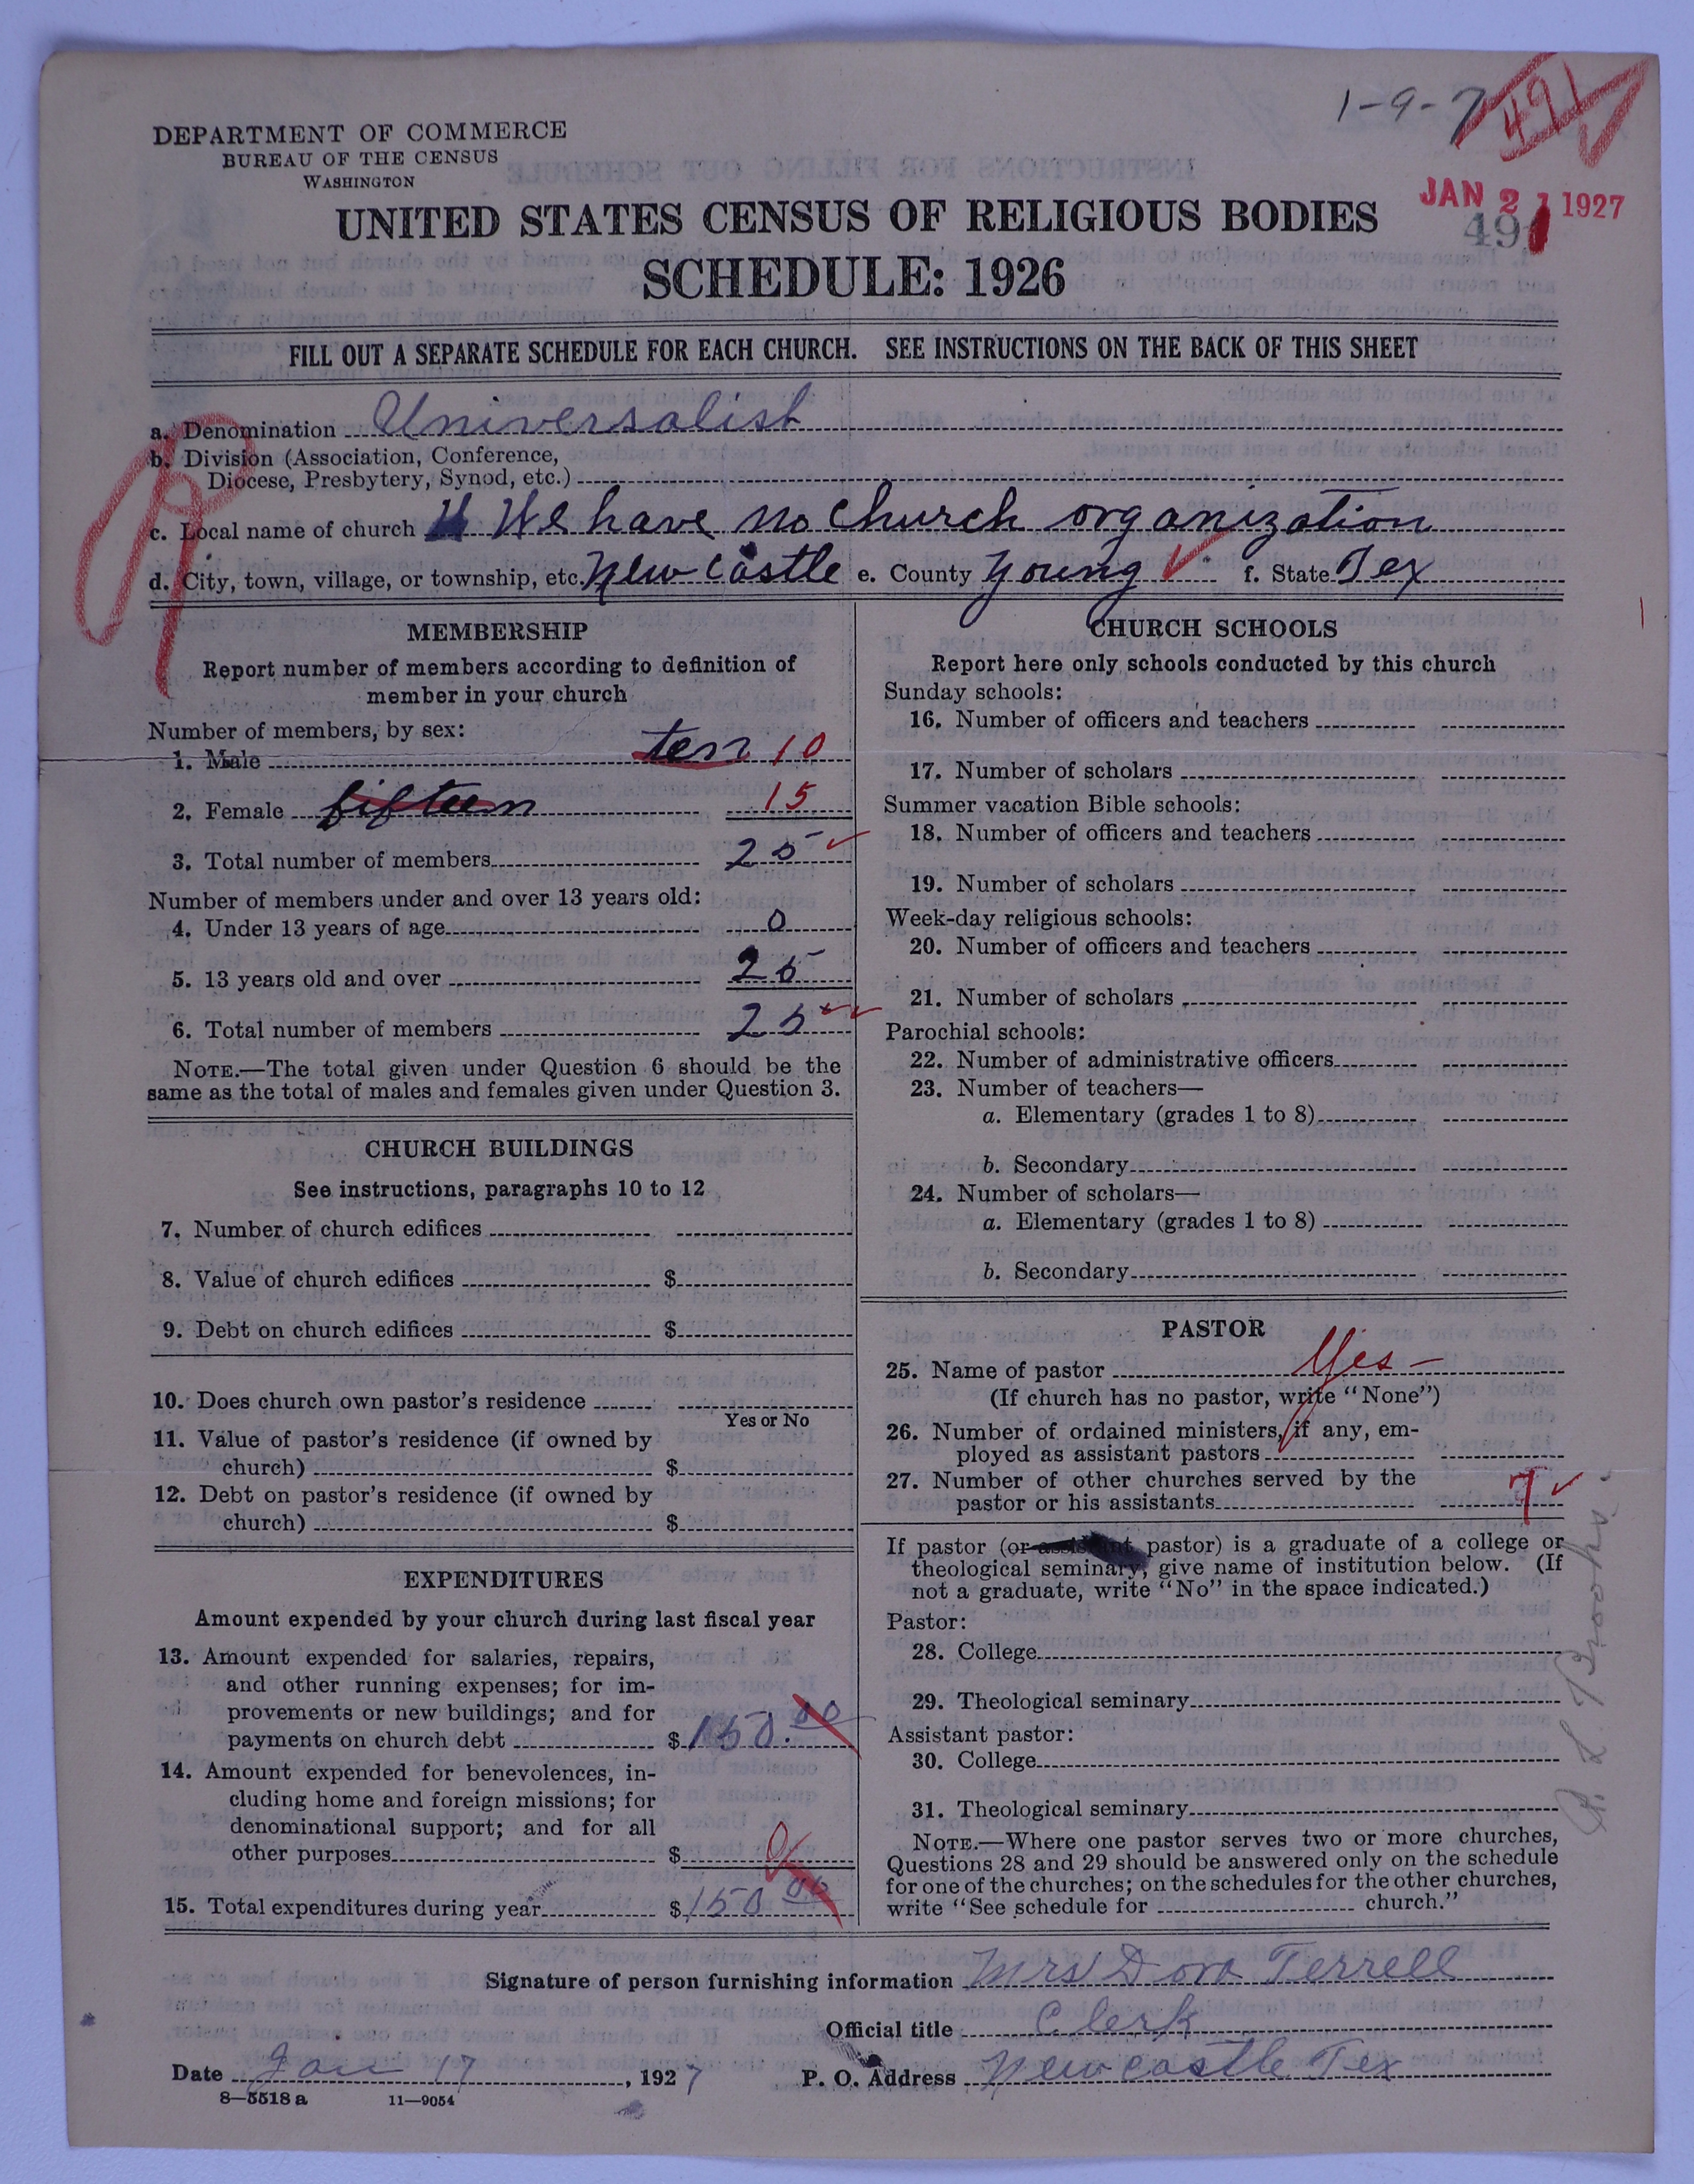 1-9-7
491
DEPARTMENT OF COMMERCE
BUREAU OF THE CENSUS
WASHINGTON
JAN 21 1927
491
UNITED STATES CENSUS OF RELIGIOUS BODIES
SCHEDULE: 1926
FILL OUT A SEPARATE SCHEDULE FOR EACH CHURCH. SEE INSTRUCTIONS ON THE BACK OF THIS SHEET
a. Denomination Universalist
b. Division (Association, Conference,
Diocese, Presbytery, Synod, etc.)
c. Local name of church We have no church organization
d. City, town, village, or township, etc. New Castle e. County Young f. State Tex
MEMBERSHIP
Report number of members according to definition of
member in your church
Number of members, by sex:
1. Male ten 10
2. Female fifteen 15
3. Total number of members 25
Number of members under and over 13 years old:
4. Under 13 years of age 0
5. 13 years old and over 25
6. Total number of members 25
NOTE.—The total given under Question 6 should be the
same as the total of males and females given under Question 3.
CHURCH BUILDINGS
See instructions, paragraphs 10 to 12
7. Number of church edifices
8. Value of church edifices $
9. Debt on church edifices $
10. Does church own pastor's residence
Yes or No
11. Value of pastor's residence (if owned by
church) $
12. Debt on pastor's residence (if owned by
church) $
EXPENDITURES
Amount expended by your church during last fiscal year
13. Amount expended for salaries, repairs,
and other running expenses; for im-
provements or new buildings; and for
payments on church debt $150.00
14. Amount expended for benevolences, in-
cluding home and foreign missions; for
denominational support; and for all
other purposes $ 0
15. Total expenditures during year $150 00
CHURCH SCHOOLS
Report here only schools conducted by this church
Sunday schools:
16. Number of officers and teachers
17. Number of scholars
Summer vacation Bible schools:
18. Number of officers and teachers
19. Number of scholars
Week-day religious schools:
20. Number of officers and teachers
21. Number of scholars
Parochial schools:
22. Number of administrative officers
23. Number of teachers—
a. Elementary (grades 1 to 8)
b. Secondary
24. Number of scholars—
a. Elementary (grades 1 to 8)
b. Secondary
PASTOR
25. Name of pastor Yes —
(If church has no pastor, write "None")
26. Number of ordained ministers, if any, em-
ployed as assistant pastors
27. Number of other churches served by the
pastor or his assistants 7
If pastor (or assistant pastor) is a graduate of a college or
theological seminary, give name of institution below. (If
not a graduate, write "No" in the space indicated.)
Pastor:
28. College
29. Theological seminary
Assistant pastor:
30. College
31. Theological seminary
NOTE.—Where one pastor serves two or more churches,
Questions 28 and 29 should be answered only on the schedule
for one of the churches; on the schedules for the other churches,
write "See schedule for church."
Brooks.
Signature of person furnishing information Mrs Dora Terrell
Official title Clerk
Date Jan 17, 1927 P. O. Address New castle Tex
8—5518 a 11—9054